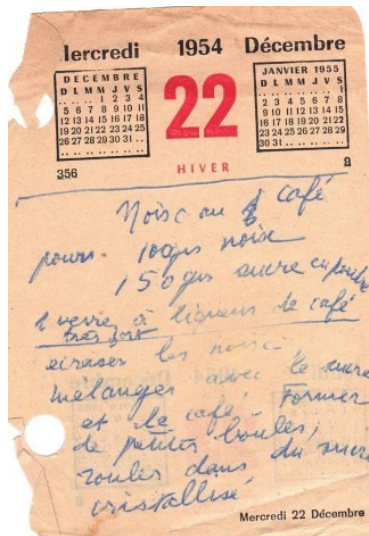 Iercredi 1954 Décembre
DECEMBRE
D L M M J V S
.. .. .. 1 2 3 4
5 6 7 8 9 10 11
12 13 14 15 16 17 18
19 20 21 22 23 24 25
26 27 28 29 30 31 ..
22
JANVIER 1955
D L M M J V S
.. .. .. .. .. .. 1
2 3 4 5 6 7 8
9 10 11 12 13 14 15
16 17 18 19 20 21 22
23 24 25 26 27 28 29
30 31 .. .. .. .. ..
HIVER
356
Noix au café
pour. 100grs noix
150grs sucre en poudre
1 verre à liqueur de café
très fort
écraser les noix
mélanger avec le sucre
et le café, Former
de petites boules,
rouler dans du sucre
cristallisé
Mercredi 22 Décembre